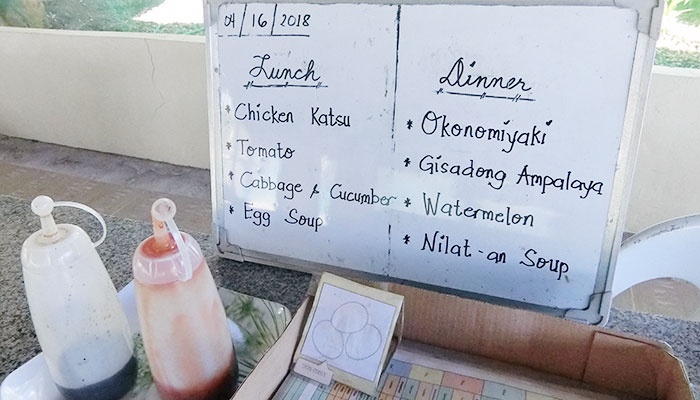 04/16/2018
Lunch
* Chicken Katsu
* Tomato
* Cabbage & Cucumber
* Egg Soup
Dinner
* Okonomiyaki
* Gisadong Ampalaya
* Watermelon
* Nilat-an Soup